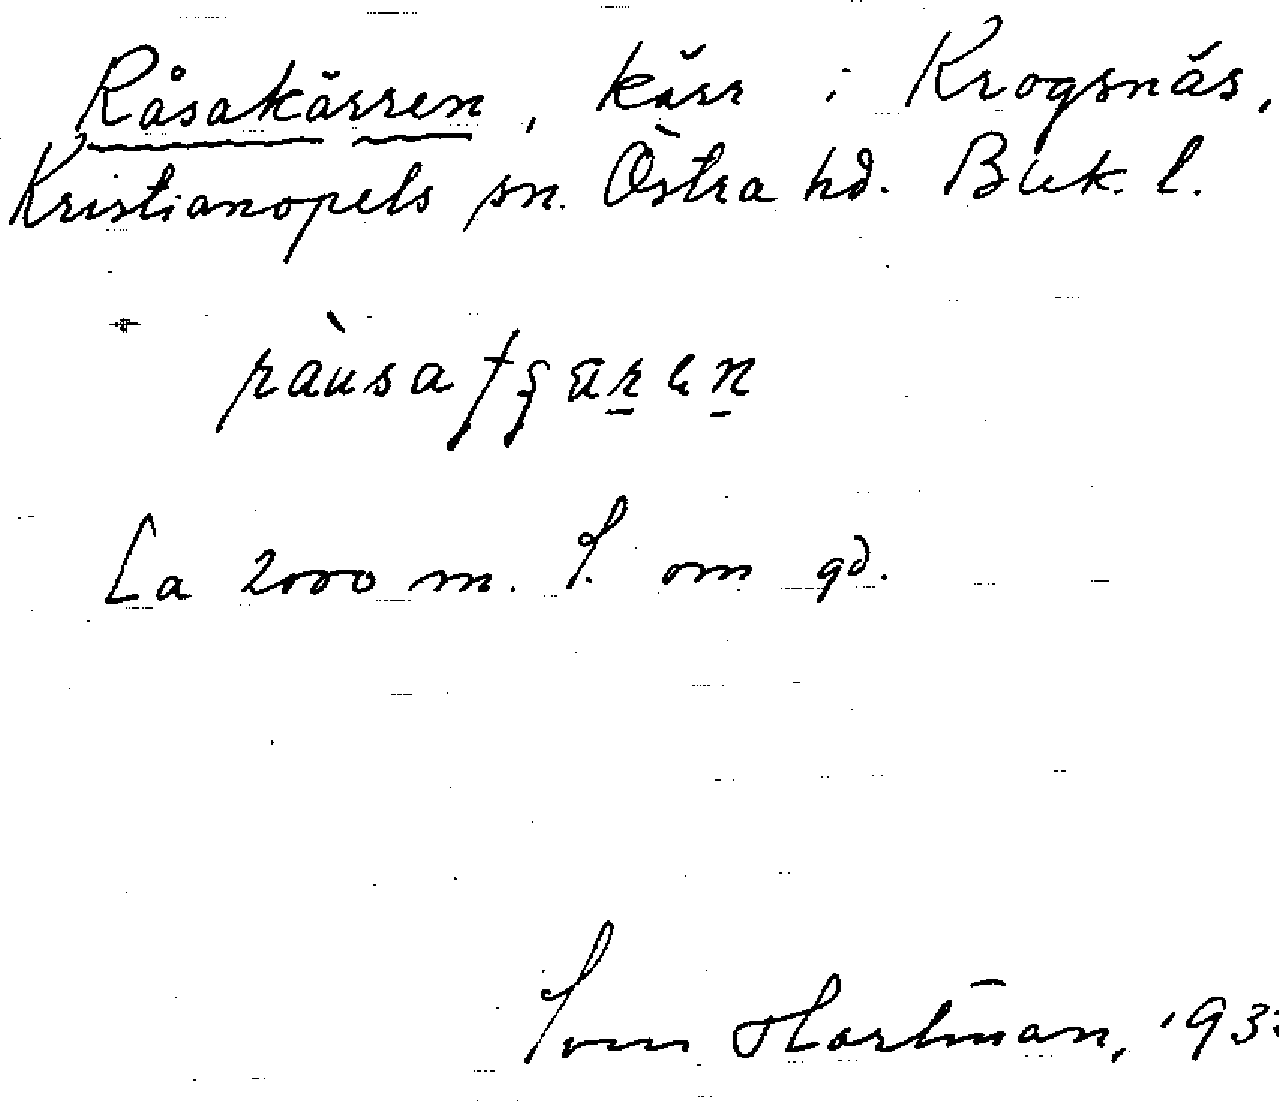 Råsakärren, kärr i Krogsnäs,
Kristianopels sn. Östra hd. Blek. l.
La 2000 m. S. om gd.
Sven Hartman, 193